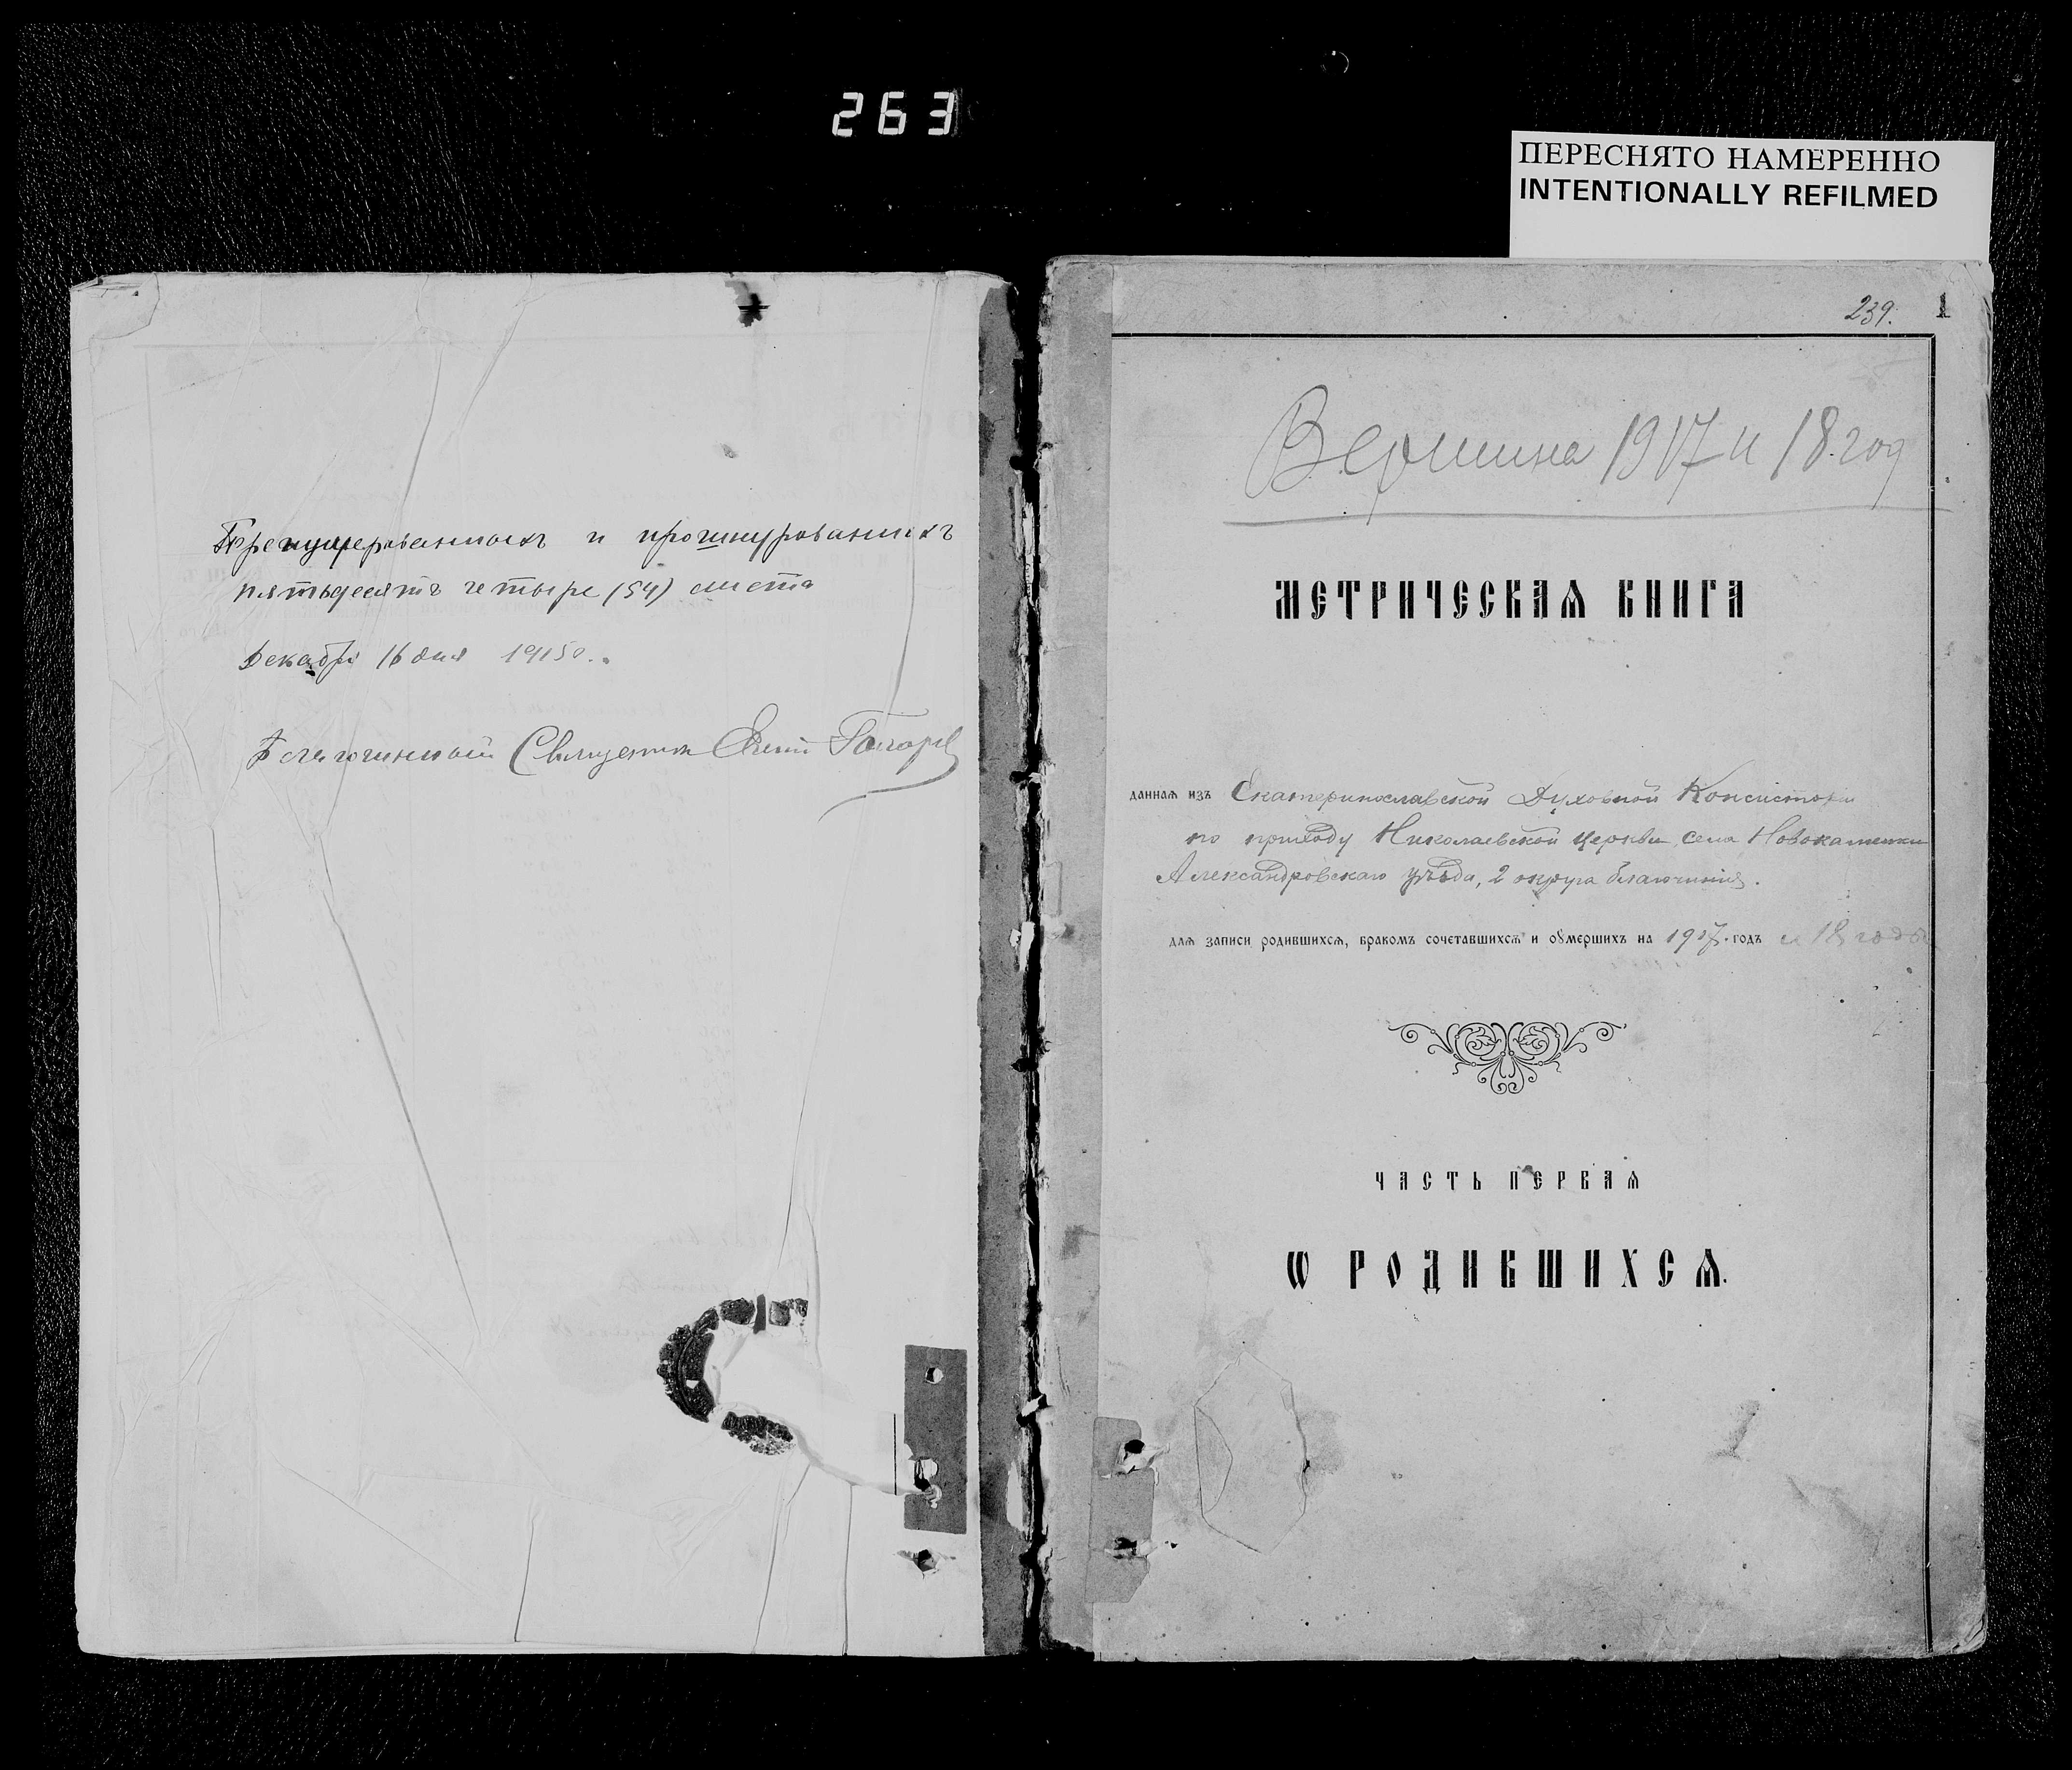 263
ПЕРЕСНЯТО НАМЕРЕННО
INTENTIONALLY REFILMED
Пренумерованныхъ и прошнурованныхъ
пятьдесятъ четыре (54) листа
Декабря 16 дня 1915 г.
Благочинный Священник
239.
1
Вершина 1917 и 18 год
МЕТРИЧЕСКАѦ КНИГА
даннаѧ изъ Екатеринославской Духовной Консисторіи
по приходу Николаевской церкви села Новокаменки
Александровскаго уѣзда, 2 округа благочинія.
длѧ записи родившихсѧ, бракомъ сочетавшихсѧ и оумершихъ на 1917 годъ и 18 годъ
ЧАСТЬ ПЕРВАѦ
Ѡ РОДИВШИХСѦ.